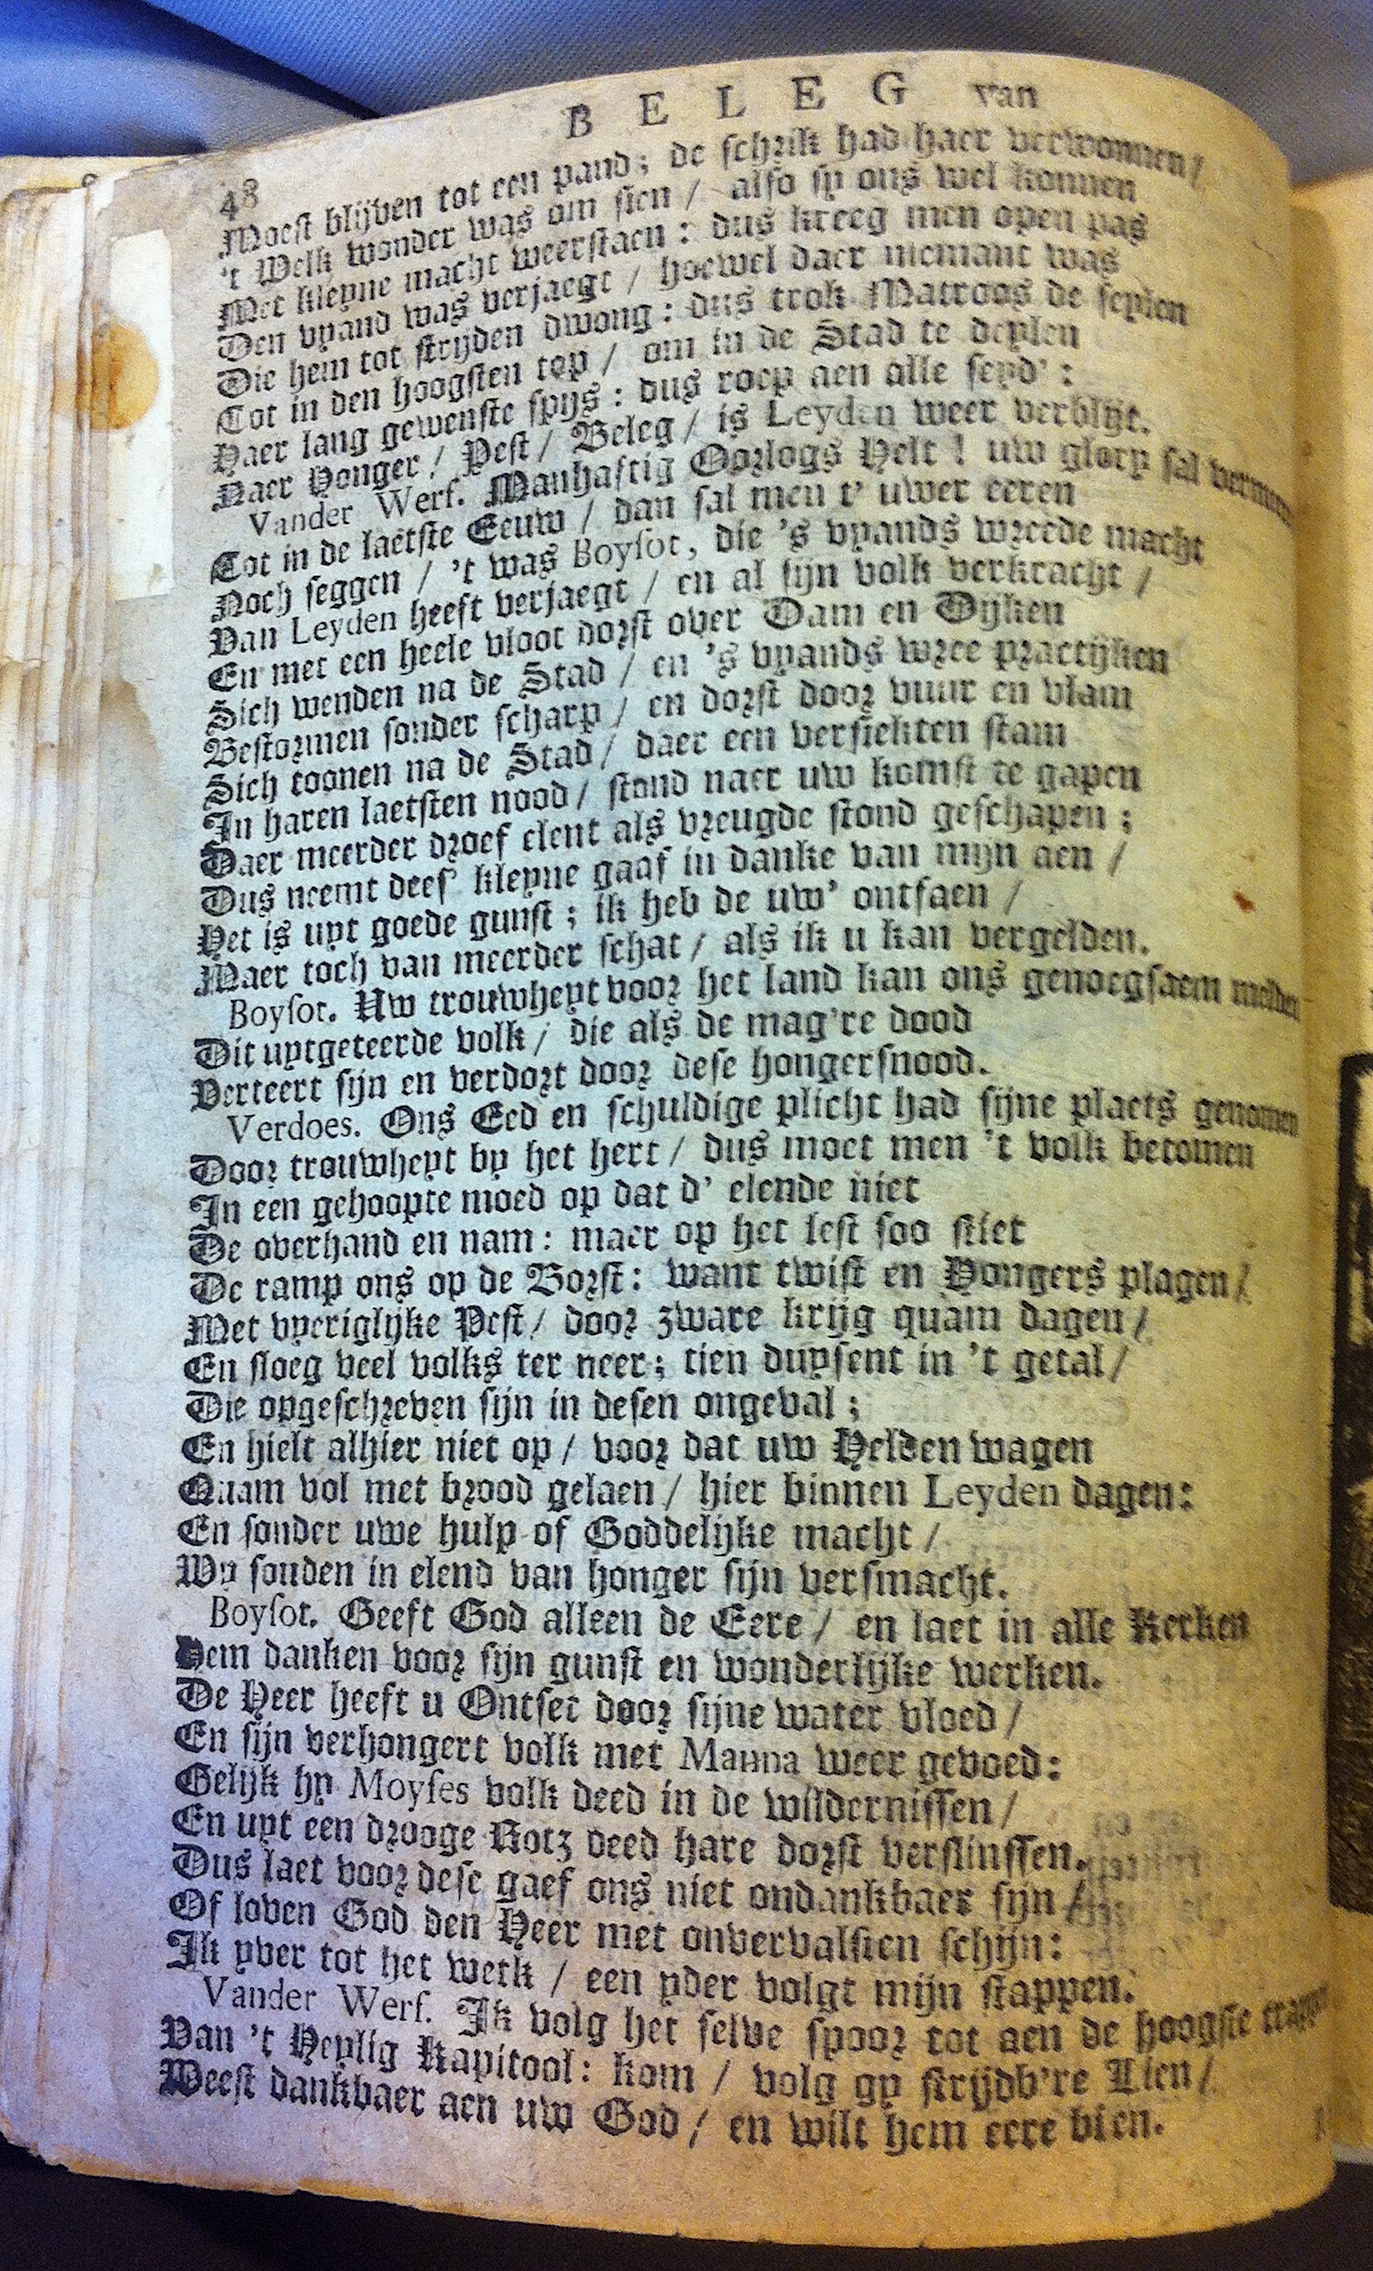 48 BELEG van
Moest blijven tot een pand; de schrik had haer verwonnen/
't Welk wonder was om sien / also sy ons wel konnen
Met kleyne macht weerstaen: dus kreeg men open pas
Den vyand was verjaegt / hoewel daer niemant was
Die hem tot strijden dwong: dus trok Matroos de seylen
Tot in den hoogsten top / om in de Stad te deylen
Haer lang gewenste spijs: dus roep aen alle seyd':
Naer Honger / Pest / Beleg / is Leyden weer verblijt.
Vander Werf. Manhaftig Oorlogs Helt! uw glory sal
Tot in de laetste Eeuw / dan sal men t' uwer eeren
Noch seggen / 't was Boysot, die 's vyands wreede macht
Van Leyden heeft verjaegt / en al sijn volk verkracht /
En met een heele vloot dorst over Dam en Dijken
Sich wenden na de Stad / en 's vyands wree practijken
Bestormen sonder scharp / en dorst door vuur en vlam
Sich toonen na de Stad / daer een versiekten stam
In haren laetsten nood / stond naer uw komst te gapen
Daer meerder droef elent als vreugde stond geschapen;
Dus neemt dees' kleyne gaaf in danke van mijn aen /
Het is uyt goede gunst; ik heb de uw' ontfaen /
Maer toch van meerder schat / als ik u kan vergelden.
Boysot. Uw trouwheyt voor het land kan ons genoegsaem melden
Dit uytgeteerde volk / die als de mag're dood
Verteert sijn en verdort door dese hongersnood.
Verdoes. Ons Eed en schuldige plicht had sijne plaets genomen
Door trouwheyt by het hert / dus moet men 't volk betomen
In een gehoopte moed op dat d' elende niet
De overhand en nam: maer op het lest soo stiet
De ramp ons op de Borst: want twist en Hongers plagen /
Met vyeriglijke Pest / door zware krijg quam dagen /
En sloeg veel volks ter neer; tien duysent in 't getal /
Die opgeschreven sijn in desen ongeval;
En hielt alhier niet op / voor dat uw Helden wagen
Quam vol met brood gelaen / hier binnen Leyden dagen:
En sonder uwe hulp of Goddelijke macht /
Wy souden in elend van honger sijn versmacht.
Boysot. Geeft God alleen de Eere / en laet in alle Kerken
Hem danken voor sijn gunst en wonderlijke werken.
De Heer heeft u Ontset door sijne water vloed /
En sijn verhongert volk met Manna weer gevoed:
Gelijk hy Moyses volk deed in de wildernissen /
En uyt een drooge Rotz deed hare dorst verslinssen.
Dus laet voor dese gaef ons niet ondankbaer sijn /
Of loven God den Heer met onvervalsten schijn:
Ik yver tot het werk / een yder volgt mijn stappen.
Vander Werf. Ik volg het selve spoor tot aen de hoogste trappen
Van 't Heylig Kapitool: kom / volg gy strijdb're Lien /
Weest dankbaer aen uw God / en wilt hem eere bien.